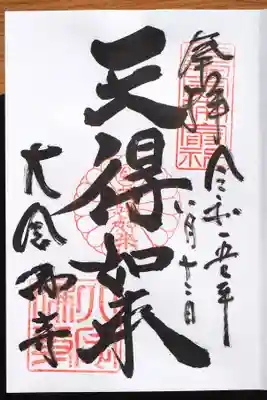 奉拝
令和五年
八月十三日
天得如来
大念佛寺